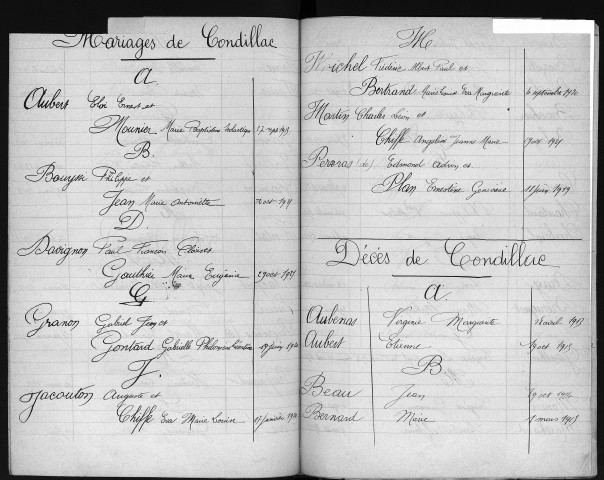 Mariages de Condillac
A.
Aubert Eloi Ernest et
Mounier Marie
B.
Bouysse Philippe et
Jean Marie Antoinette oct
D.
Davignon Paul François et
Gauthier Marie Eugénie 29 oct
G
Granon Gabriel Jean et
Gontard Gabrielle juin
J.
Jacouton Auguste et
Chiffe Eva Marie Louise janvier
M
Michel Frédéric Albert Paul et
Bertrand Marie Louise Eva Marguerite 6 septembre
Martin Charles Léon et
Chiffe Angeline Jeanne Marie
(de) Edmond et
Plan Ernestine Geneviève juin 1919
Décès de Condillac
A.
Aubenas Virginie Marguerite avril 1913
Aubert Etienne 19 oct 1915
B.
Beau Jean oct
Bernard Marie mars